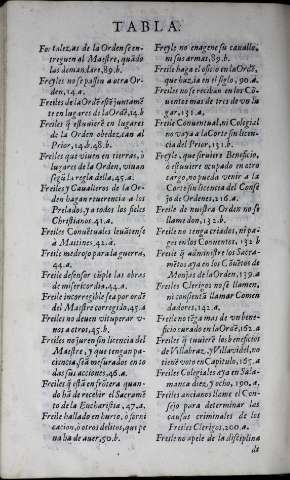 TABLA.
Fortalezas de la Orden se en-
treguen al Maestre, quãdo
las demandare, 89.b.
Freyles no se passin a otra Or-
den, 14.a.
Freiles de la Ordẽ estẽ juntamẽ
te en lugares de la Ordẽ, 14.b
Freiles q̃ estuvierẽ en lugares
de la Orden obedezcan al
Prior, 14.b. 48.b.
Freiles que viven en tierras, ò
lugares de la Orden, vivan
segũ la regla della, 45.a.
Freiles y Cavalleros de la Or-
den hagan reverencia a los
Prelados, y a todos los fieles
Christianos, 41.a.
Freiles Conuẽtuales leuãtense
à Maitines, 42.a.
Freile medroso para la guerra,
44.a.
Freile defensor cũple las obras
de misericordia, 44.a.
Freile incorregible sea por ordẽ
del Maestre corregido, 45.a.
Freiles no deven vituperar v-
nos a otros, 45.b.
Freiles no juren sin licencia del
Maestre, y que tengan pa-
ciencia, seã mesurados en to
das sus acciones, 46.a.
Freiles q̃ està en frõtera quan-
do hà de recebir el Sacramẽ
to de la Eucharistia, 47.a.
Freile hallado en hurto, ò forni
cacion, ò otros delitos, que pe
na ha de auer, 50.b.
Freyle no enagene su cauallo,
ni sus armas, 89.b.
Freile haga el oficio en la Ordẽ,
que hazia en el siglo, 90.a.
Freiles no se reciban en los Cõ
uentos mas de tres de vn lu
gar, 131.a.
Freile Conuentual, ni Colegial
no vaya a la Corte sin licen-
cia del Prior, 131.b.
Freyle, que siruiere Beneficio,
ò estuuiere ocupado en otro
cargo, no pueda venir a la
Corte sin licencia del Conse
jo de Ordenes, 116.a.
Freile de nuestra Orden no se
llame don, 132.b.
Freile no tenga criados, ni pa-
ges en los Conuentos, 132.b
Freile q̃ administre los Sacra-
mẽtos aya en los Cõuẽtos de
Monjas de la Orden, 139.a
Freiles Clerigos no se llamen,
ni consientã llamar Comen
dadores, 142.a.
Freile no tẽga mas de vn bene-
ficio curado en la Ordẽ, 162.a
Freiles q̃ tuuierẽ los beneficios
de Villabraz, y Villauidel, no
tienẽ voto en Capitulo, 167.a
Freiles Colegiales aya en Sala-
manca diez, y ocho, 190.a,
Freiles ancianos llame el Con-
sejo para determinar las
causas criminales de los
Freiles Clerigos, 200.a.
Freile no apele de la disciplina
de